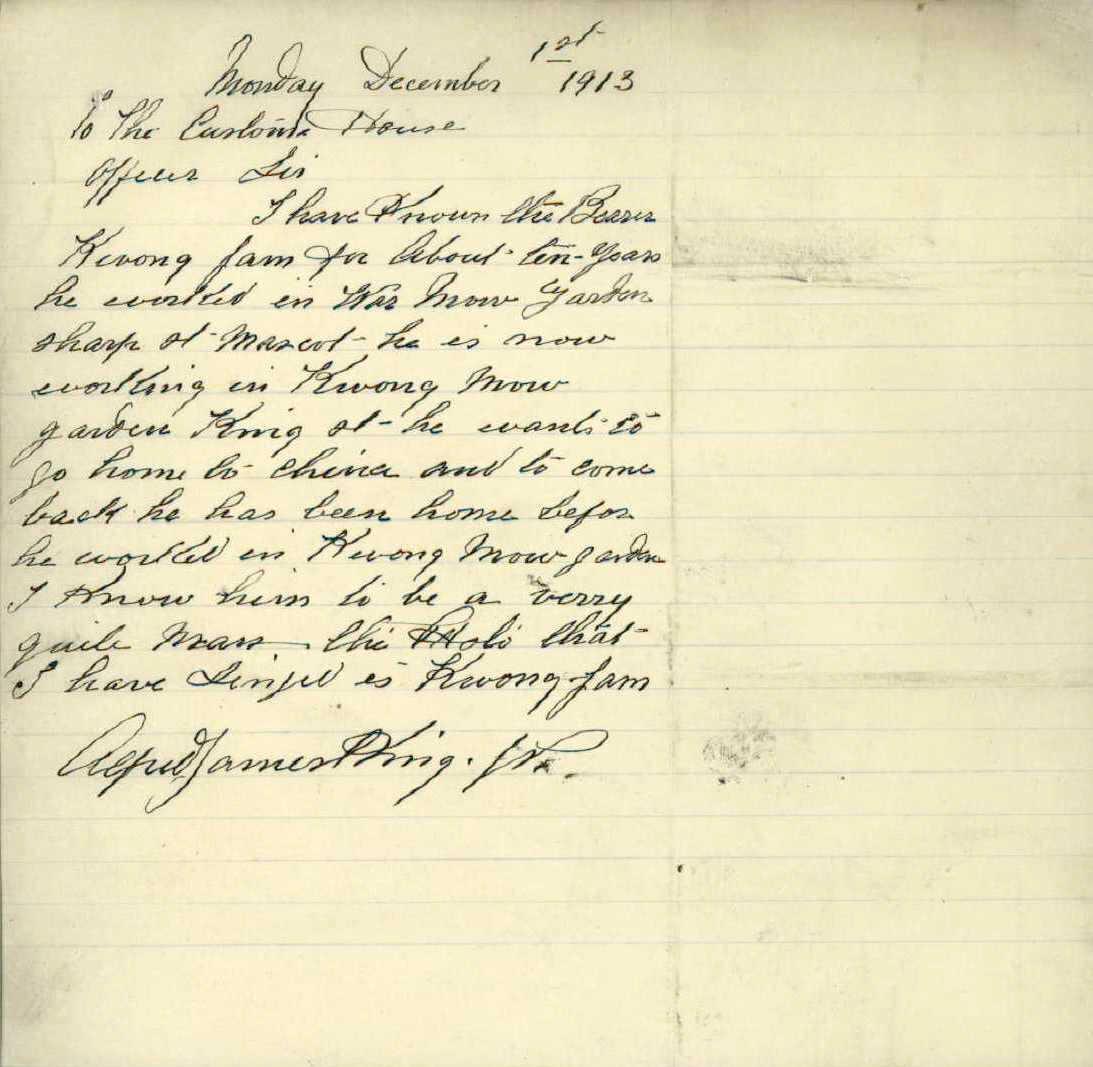 Monday December 1st 1913
To The Customs House
Officer Sir
I have Known the Bearer
Kwong Jam for About ten Years
he worked in War Mow Garden
sharp st Mascot he is now
working in Kwong Mow
garden King st he wants to
go home to China and to come
back he has been home befor
he worked in Kwong Mow garden
I Know him to be a verry
quite Man the that
I have Sinjed is Kwong Jam
Alfred James King. Jr.